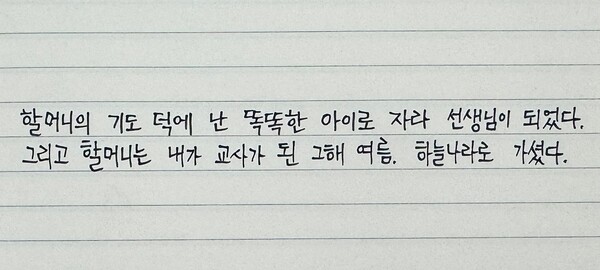 할머니의 기도 덕에 난 똑똑한 아이로 자라 선생님이 되었다.
그리고 할머니는 내가 교사가 된 그해 여름. 하늘나라로 가셨다.